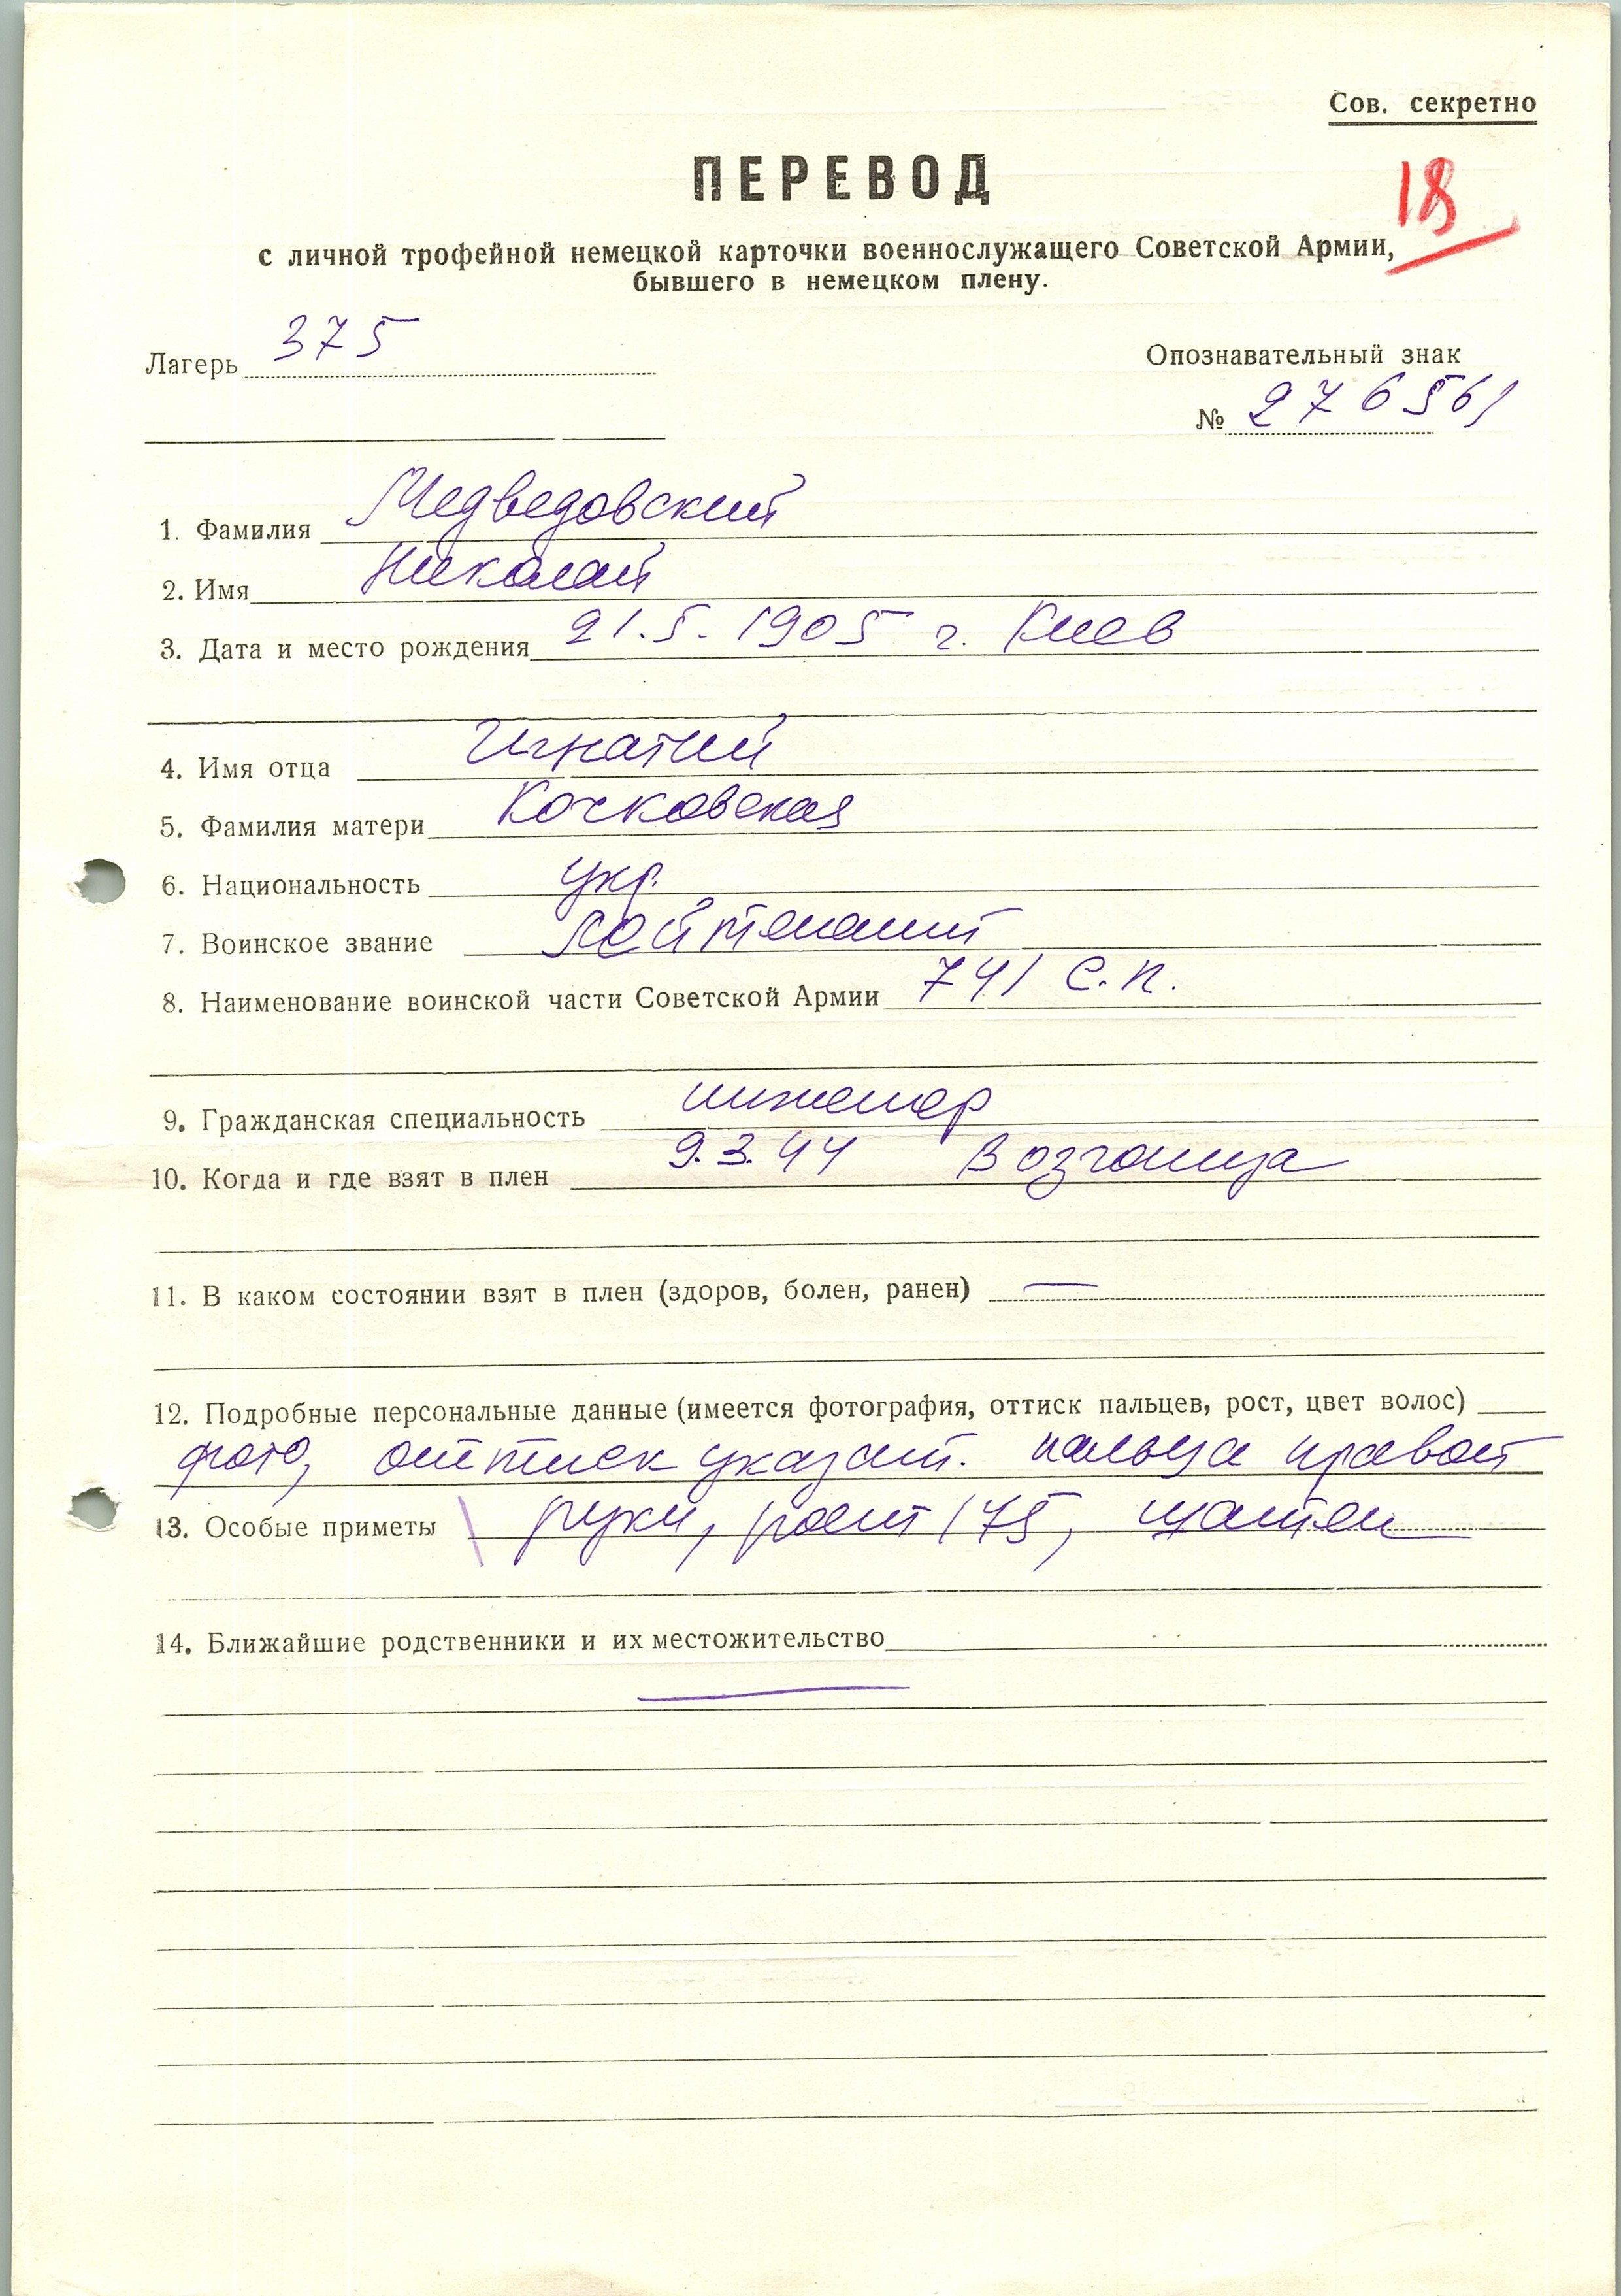 Сов. секретно
ПЕРЕВОД
18
с личной трофейной немецкой карточки военнослужащего Советской Армии,
бывшего в немецком плену.
Лагерь 375
Опознавательный знак
№ 276561
1. Фамилия Медведовский
2. Имя Николай
3. Дата и место рождения 21.5.1905 г. Киев
4. Имя отца Игнатий
5. Фамилия матери Кочковская
6. Национальность укр.
7. Воинское звание лейтенант
8. Наименование воинской части Советской Армии 741 с.п.
9. Гражданская специальность инженер
10. Когда и где взят в плен 9.3.44
11. В каком состоянии взят в плен (здоров, болен, ранен) —
12. Подробные персональные данные (имеется фотография, оттиск пальцев, рост, цвет волос)
фото, оттиск указат. пальца правой
13. Особые приметы руки, рост 175, шатен
14. Ближайшие родственники и их местожительство
—